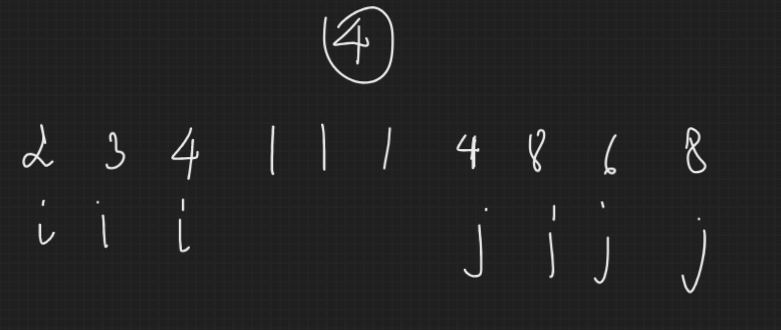 4
2 3 4 1 1 1 4 8 6 8
i i i j j j j